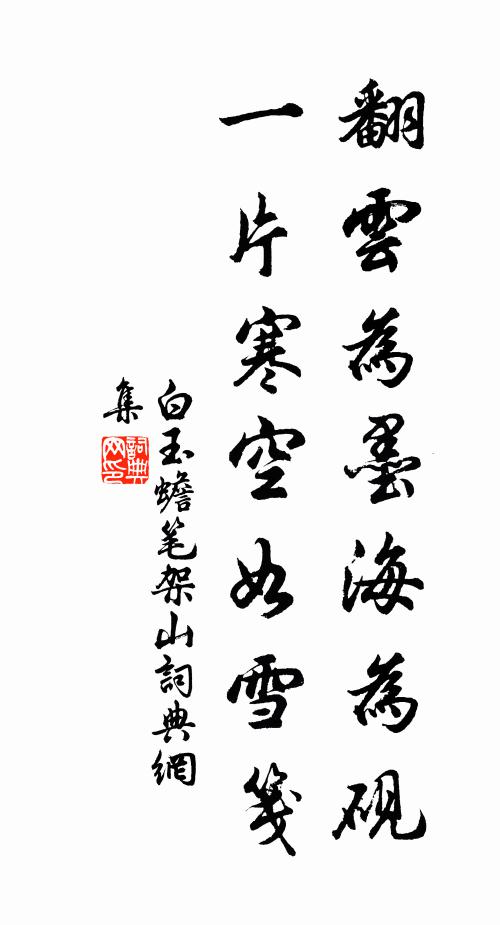 翻雲為墨海為硯
一片寒空如雪箋
白玉蟾笔架山詞典網
集
詞典網印